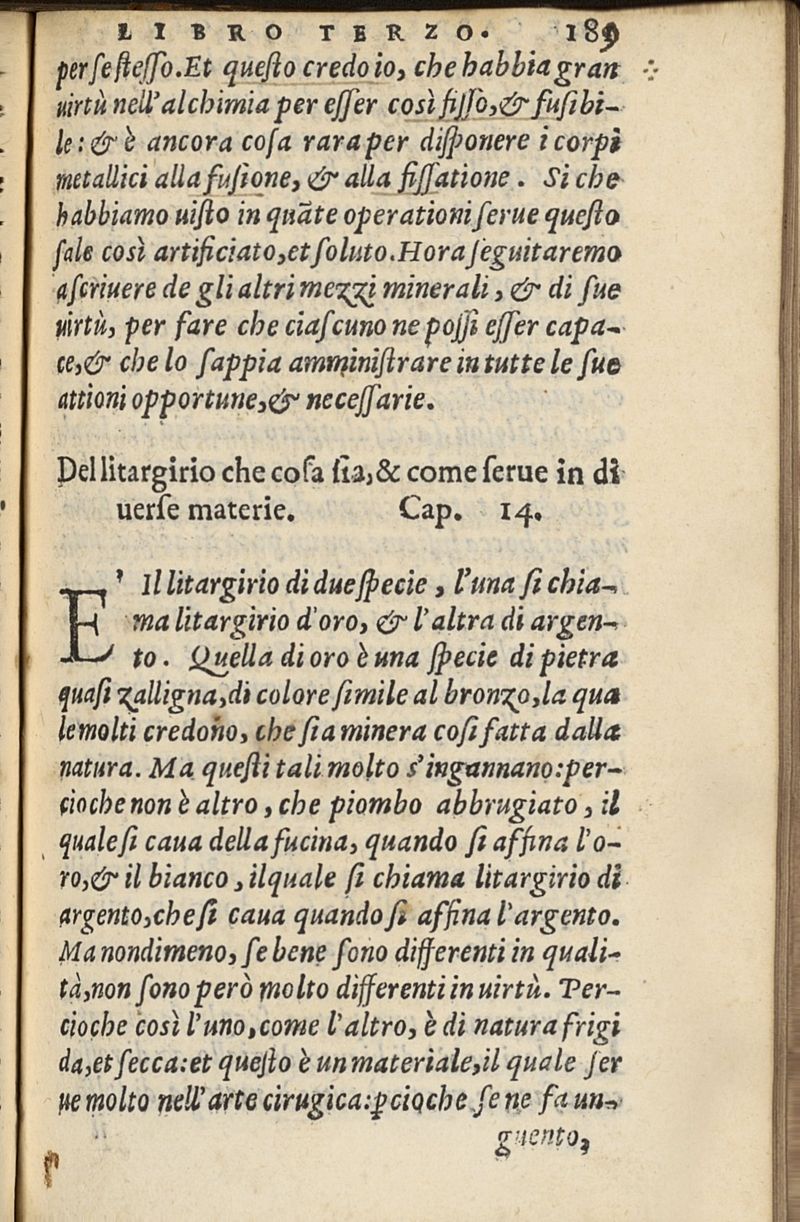 LIBRO TERZO. 189
per se steſſo. Et queſto credo io, che habbia gran
uirtù nell'alchimia per eſſer così fiſſo, & fuſibi-
le: & è ancora coſa rara per diſponere i corpi
metallici alla fuſione, & alla fiſſatione. Si che
habbiamo uiſto in quāte operationi ſerue queſto
ſale così artificiato, et ſoluto. Hora ſeguitaremo
a ſcriuere de gli altri mezzi minerali, & di ſue
uirtù, per fare che ciaſcuno ne poſſi eſſer capa-
ce, & che lo ſappia amminiſtrare in tutte le ſue
attioni opportune, & neceſſarie.
Del litargirio che coſa ſia, & come ſerue in di
uerſe materie. Cap. 14.
E' Il litargirio di due ſpecie, l'una ſi chia-
ma litargirio d'oro, & l'altra di argen-
to. Quella di oro è una ſpecie di pietra
quaſi zalligna, di colore ſimile al bronzo, la qua
le molti credono, che ſia minera coſi fatta dalla
natura. Ma queſti tali molto s'ingannano: per-
cioche non è altro, che piombo abbrugiato, il
quale ſi caua della fucina, quando ſi affina l'o-
ro, & il bianco, ilquale ſi chiama litargirio di
argento, che ſi caua quando ſi affina l'argento.
Ma nondimeno, ſe bene ſono differenti in quali-
tà, non ſono però molto differenti in uirtù. Per-
cioche così l'uno, come l'altro, è di natura frigi
da, et ſecca: et queſto è un materiale, il quale ſer
ue molto nell'arte cirugica: ꝑcioche ſe ne fa un-
guento,